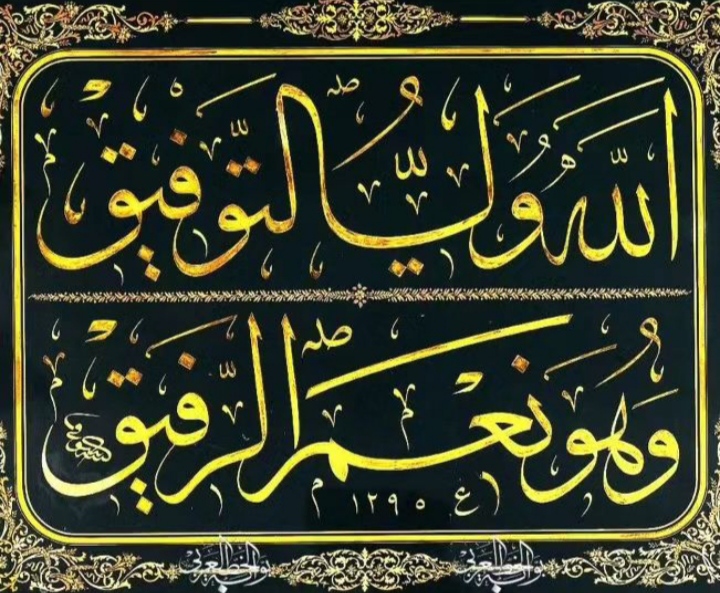 الله ولي التوفيق
وهو نعم الرفيق
١٢٩٥